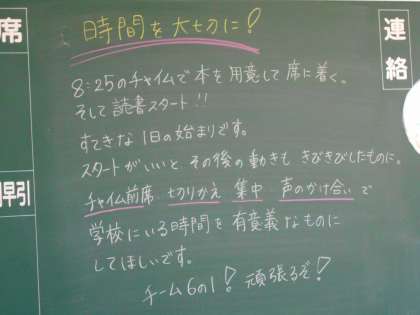 席
連絡
早引
時間を大切に!
8:25のチャイムで本を用意して席に着く。
そして読書スタート!!
すてきな1日の始まりです。
スタートがいいと、その後の動きも きびきびしたものに。
チャイム前席 切りかえ 集中 声のかけ合い で
学校にいる時間を有意義なものに
してほしいです。
チーム6の1! 頑張るぞ!